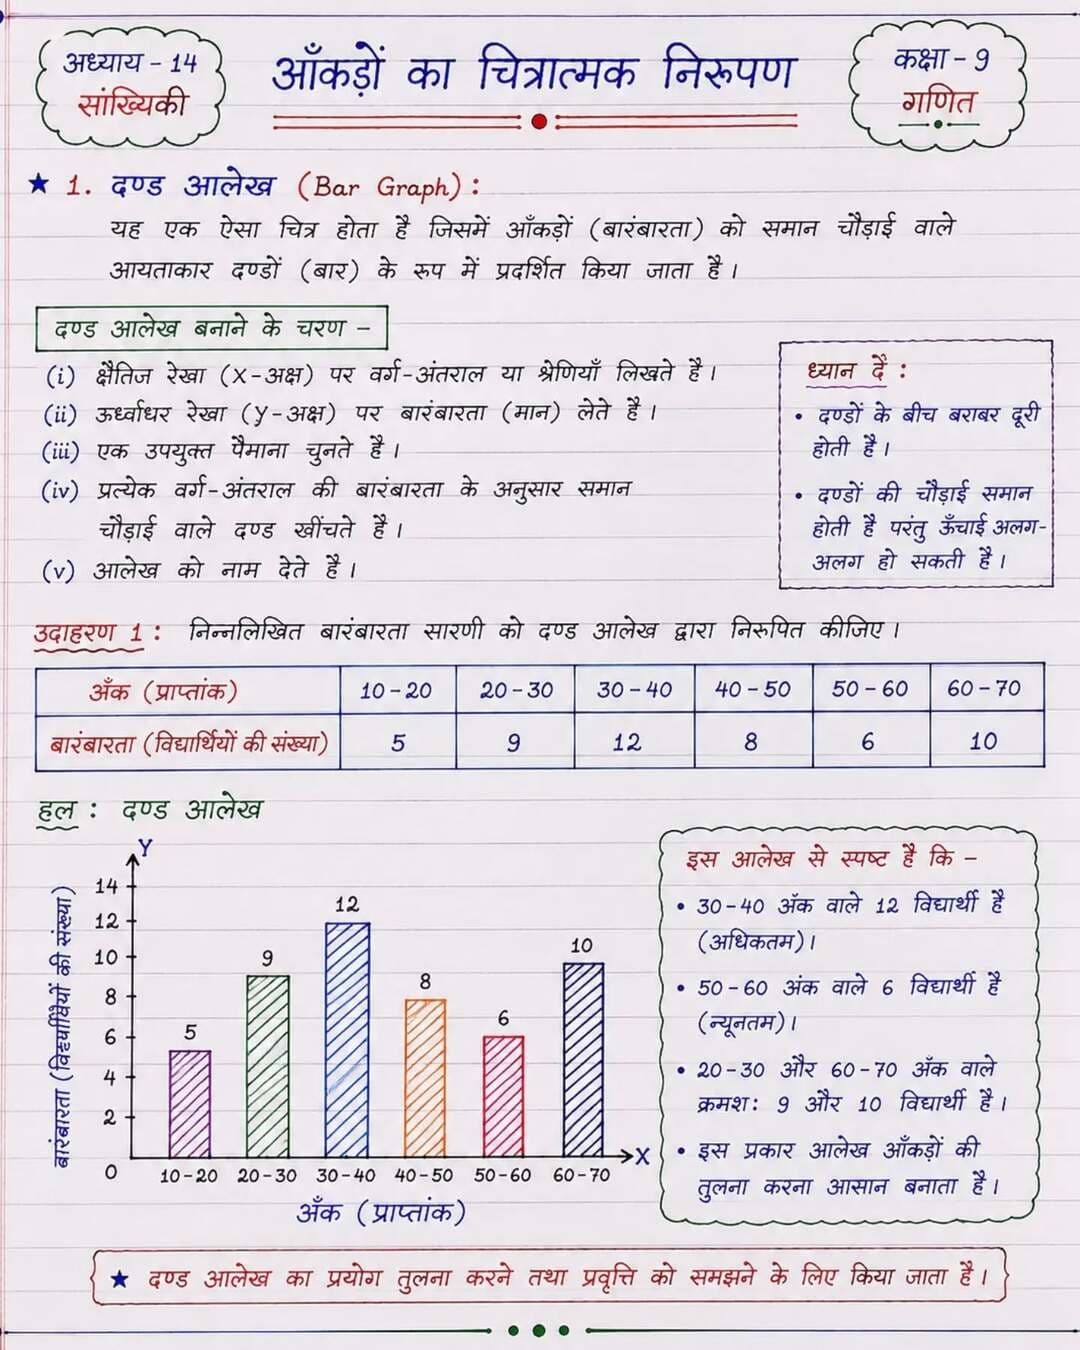 अध्याय - 14
सांख्यिकी
आँकड़ों का चित्रात्मक निरूपण
कक्षा - 9
गणित
★ 1. दण्ड आलेख (Bar Graph) :
यह एक ऐसा चित्र होता है जिसमें आँकड़ों (बारंबारता) को समान चौड़ाई वाले
आयताकार दण्डों (बार) के रूप में प्रदर्शित किया जाता है।
दण्ड आलेख बनाने के चरण -
(i) क्षैतिज रेखा (x-अक्ष) पर वर्ग-अंतराल या श्रेणियाँ लिखते है।
(ii) ऊर्ध्वाधर रेखा (y-अक्ष) पर बारंबारता (मान) लेते है।
(iii) एक उपयुक्त पैमाना चुनते है।
(iv) प्रत्येक वर्ग-अंतराल की बारंबारता के अनुसार समान
चौड़ाई वाले दण्ड खींचते है।
(v) आलेख को नाम देते है।
ध्यान दें :
• दण्डों के बीच बराबर दूरी
होती है।
• दण्डों की चौड़ाई समान
होती है परंतु ऊँचाई अलग-
अलग हो सकती है।
उदाहरण 1 : निन्नलिखित बारंबारता सारणी को दण्ड आलेख द्वारा निरूपित कीजिए।
अँक (प्राप्तांक) 10-20 20-30 30-40 40-50 50-60 60-70
बारंबारता (विद्यार्थियों की संख्या) 5 9 12 8 6 10
हल : दण्ड आलेख
Y
14
12
10
8
6
4
2
0
बारंबारता की संख्या)
5
9
12
8
6
10
X
10-20 20-30 30-40 40-50 50-60 60-70
अँक (प्राप्तांक)
इस आलेख से स्पष्ट है कि -
• 30-40 अँक वाले 12 विद्यार्थी है
(अधिकतम)।
• 50-60 अंक वाले 6 विद्यार्थी है
(न्यूनतम)।
• 20-30 और 60-70 अँक वाले
क्रमश: 9 और 10 विद्यार्थी है।
• इस प्रकार आलेख आँकड़ों की
तुलना करना आसान बनाता है।
★ दण्ड आलेख का प्रयोग तुलना करने तथा प्रवृत्ति को समझने के लिए किया जाता है।